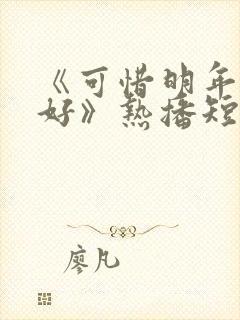 《可惜明年
好》热播短
廖凡